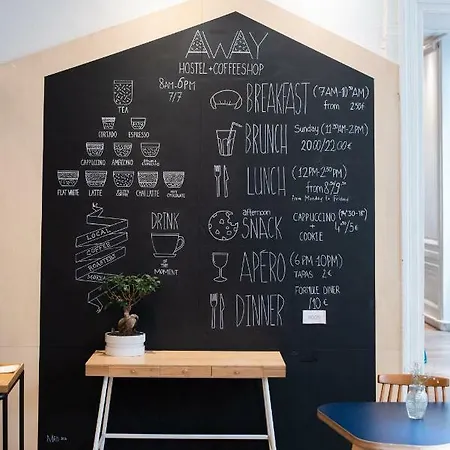 AWAY
HOSTEL + COFFEESHOP
8AM-6PM
7/7
TEA
CORTADO ESPRESSO
CAPPUCCINO AMERICANO
FLAT WHITE LATTE CHAI LATTE
LOCAL
COFFEE
ROASTERY
MOKXA
DRINK
THE
MOMENT
BREAKFAST (7AM-10:30AM)
from
BRUNCH Sunday (11:30AM-2PM)
20.00/22.00€
LUNCH (12PM-2:30PM)
from
from Monday to Friday
afternoon
SNACK CAPPUCCINO
+
COOKIE
APÉRO (6PM-10PM)
TAPAS 2€
DINNER FORMULE DINER